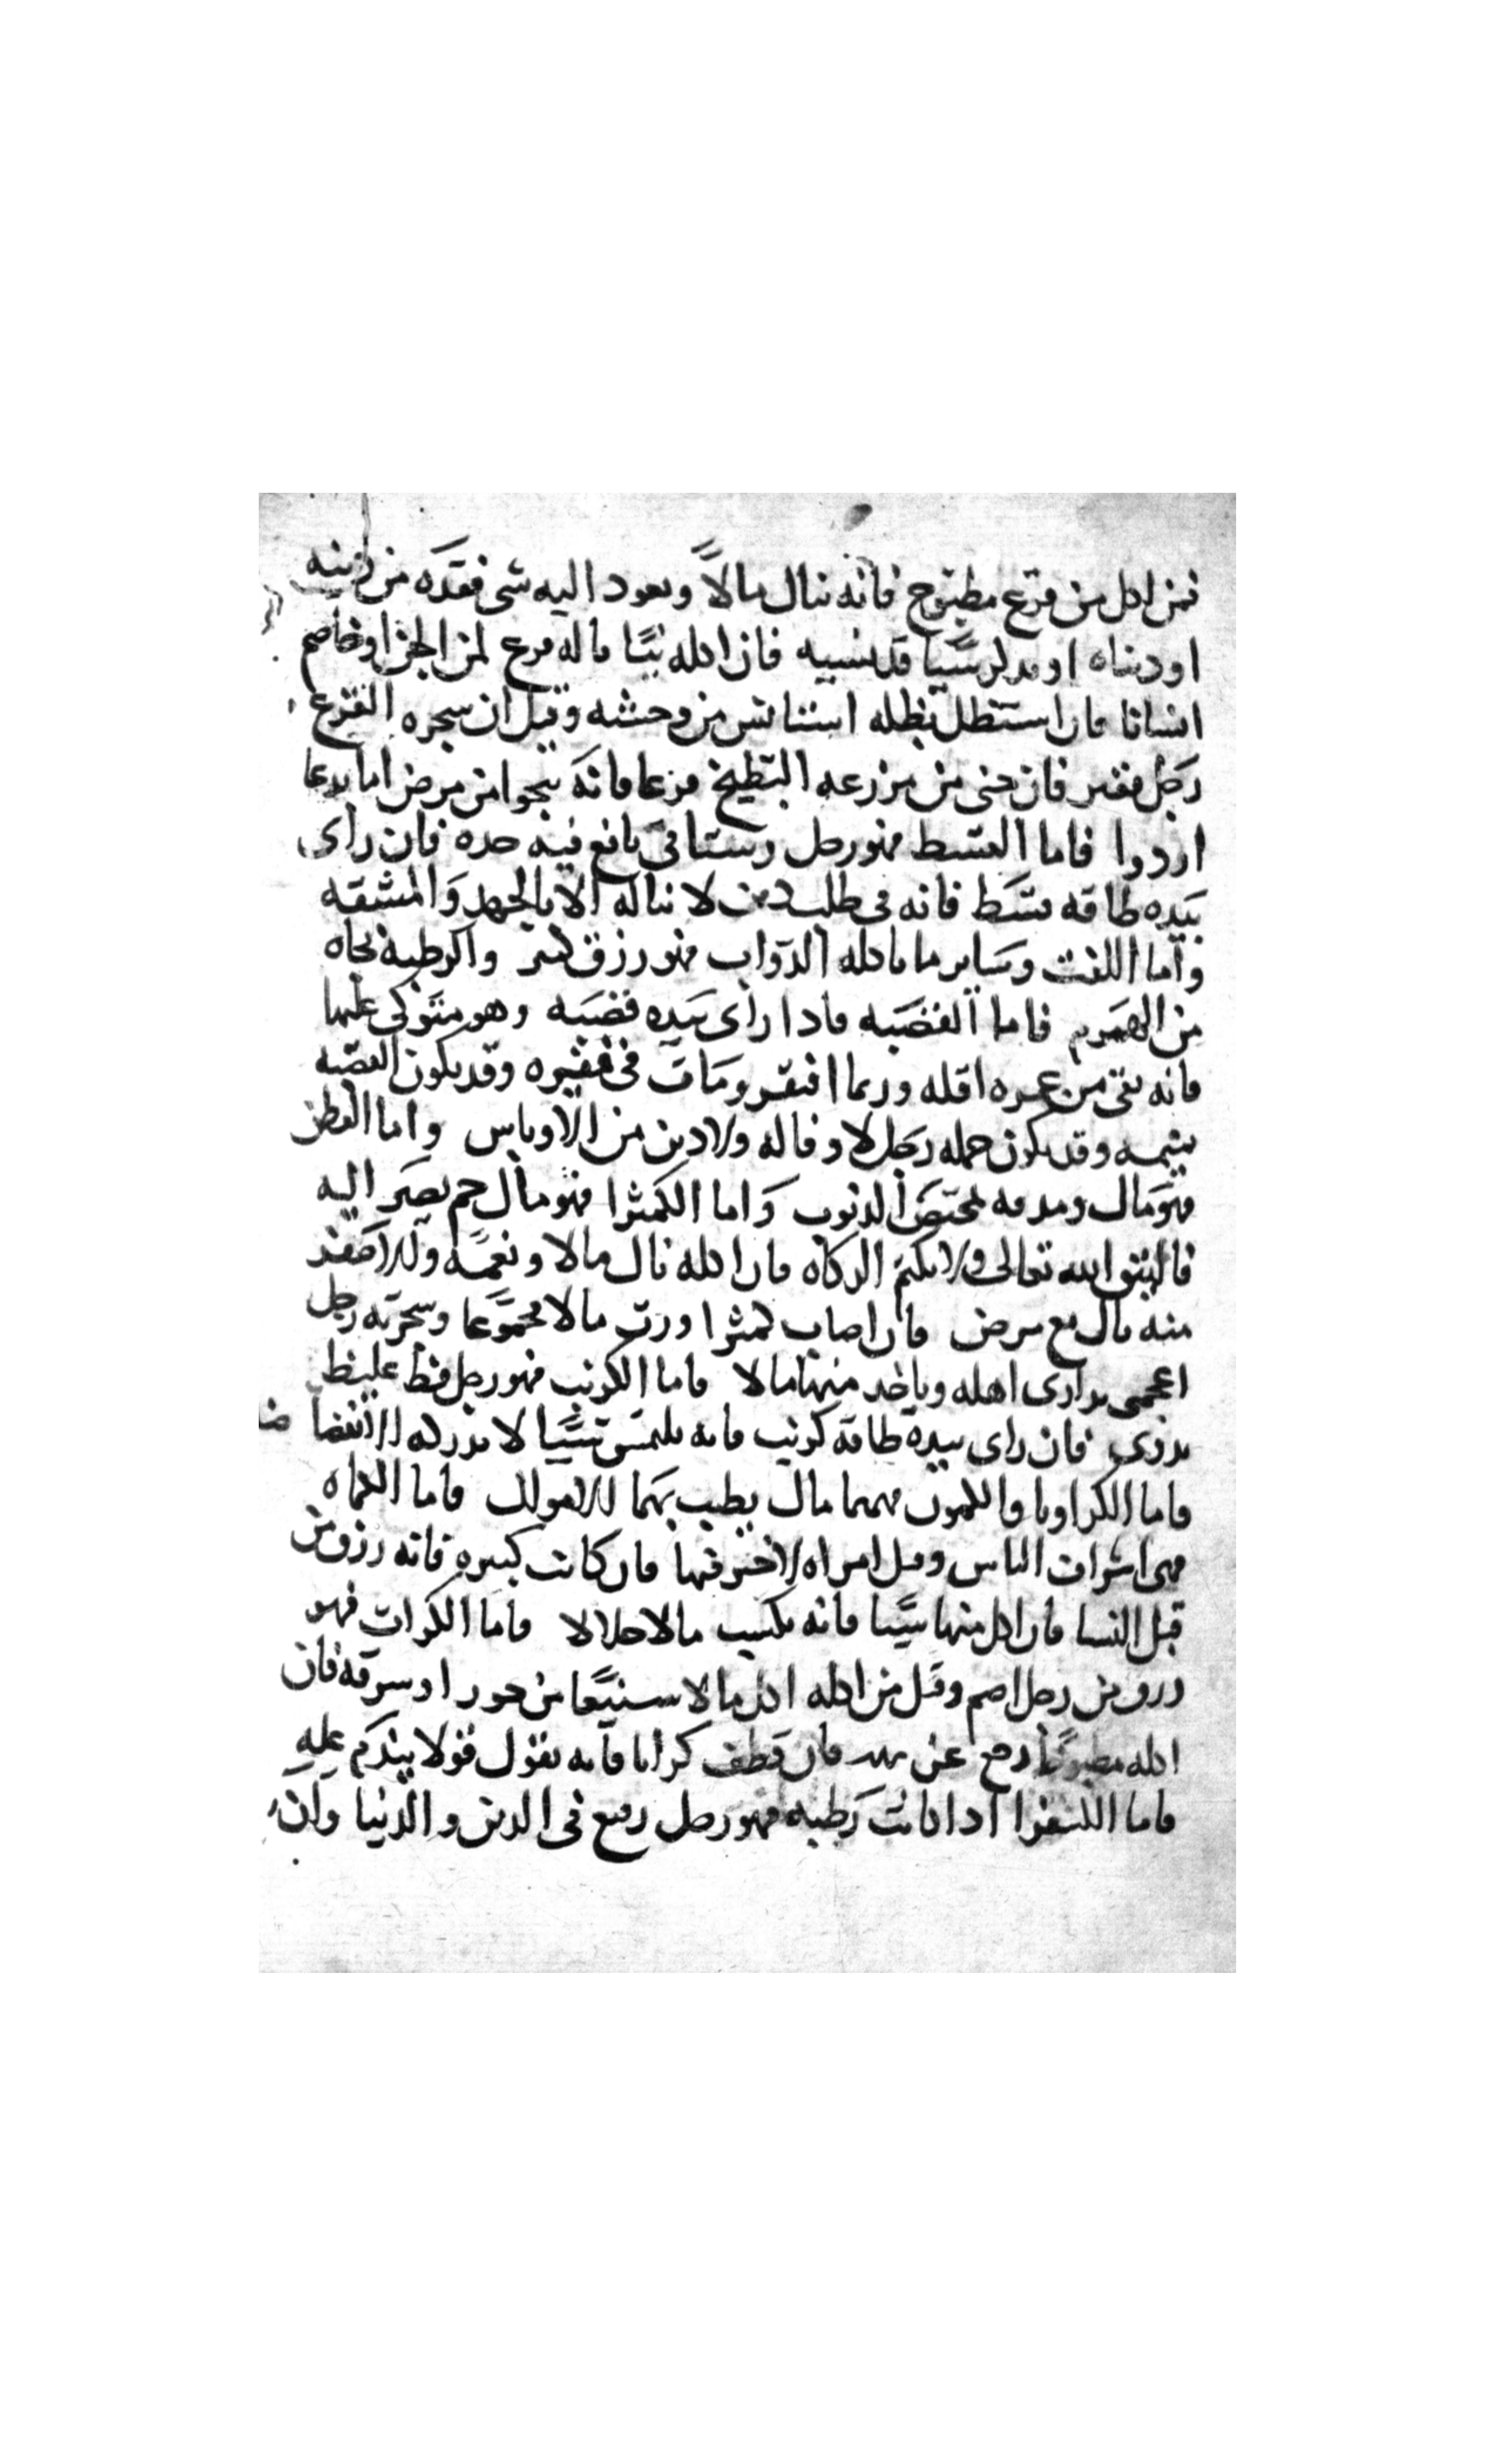 فمن اكل من قرع مطبوخ فانه ينال مالاً ويعود اليه شى فقده من دينه
او دنياه او يدكر شيا قد نسيه فان اكله نيّا فانه يفزع من الجن او يخاصم
انسانا فان استظل بظله استانس من وحشه وقيل ان شجره القرع
رجل فقير فان جنى من مزرعه البطيخ قرعا فانه ينجوا من مرض اما بدعا
او دوا فاما القسط فهو رجل رستاقى يانع فيه حده فان راى
بيده طاقه قسط فانه فى طلب لا يناله الا بالجهد والمشقه
واما اللفت وساير ما ياكله الدواب فهو رزق كثير والرطبه نجاه
من الهموم فاما القصبه فادا راى بيده قصبه وهو متوكى عليها
فانه بقى من عمره اقله وربما افتقر ومات فى فقره وقد يكون القصبه
نميمه وقد يكون حمله رجل لا وفا له ولا دين من الاوباش واما القطن
فهو مال ومدقه تمحيص الذنوب واما الكمثرا فهو مال جم يصير اليه
فاليتق الله تعالى ولا يكتم الزكاه فان اكله نال مالا ونعمه والاصفر
منه مال مع مرض فان اصاب كمثرا ورث مالا مجموعا وشجرته رجل
اعجمى يدارى اهله وياخد منها مالا فاما الكرنب فهو رجل فظ غليظ
بدوى فان راى بيده طاقه كرنب فانه يلتمس شيا لا يدركه
فاما الكراويا والكمون فهما مال يطيب بهما الاموال فاما الكماه
فهى اشراف الناس وقيل امراه لا خير فيها فان كانت كثيره فانه رزق من
قبل النسا فان اكل منها شيا فانه يكسب مالا حلالا فاما الكراث فهو
رزق من رجل اصم وقيل من اكله اكل مالا شنيعا من جور او سرقه فان
اكله مطبوخا رجع عن فان قطف كراثا فانه يقول قولا يندم عليه
فاما الكسفرا ادا كانت رطبه فهو رجل رفيع فى الدين والدنيا وان